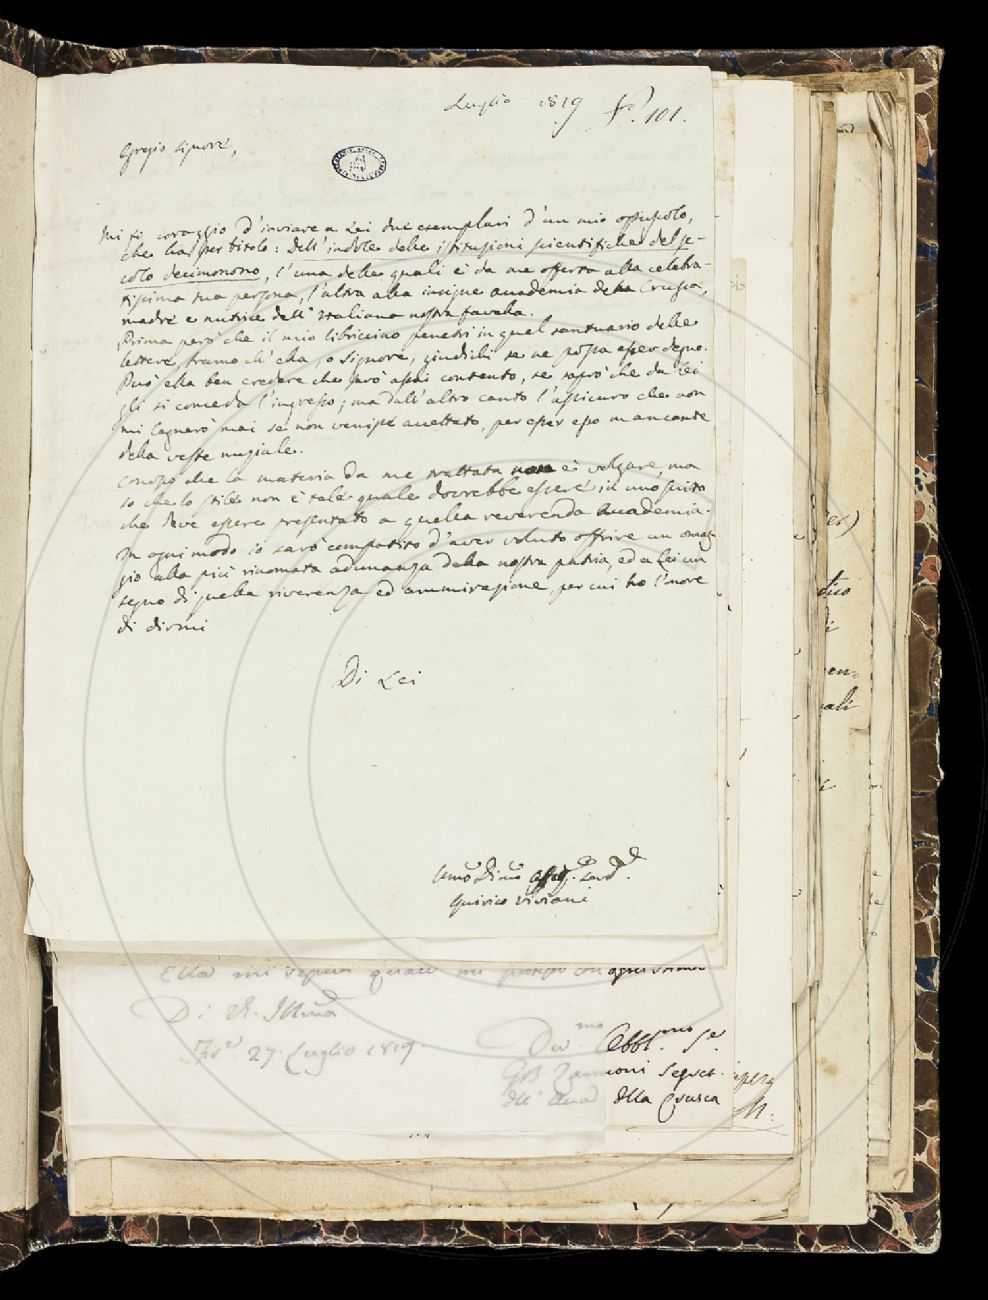 Luglio 1819 N.º 101.
Egregio Signore,
Mi fo coraggio d'inviare a Lei due esemplari d'un mio opuscolo,
che ha per titolo: Dell'indole delle istituzioni scientifiche del se-
colo decimonono, l'una delle quali è da me offerta alla celebra-
tissima sua persona, l'altra alla insigne accademia della Crusca,
madre e nutrice dell'Italiana nostra favella.
Prima però che il mio libriccino penetri in quel santuario delle
lettere, bramo ch'ella, o Signore, giudichi se ne possa esser degno.
Può ella ben credere che sarò assai contento, se saprò che da Lei
gli si conceda l'ingresso; ma dall'altro canto l'assicuro che non
mi lagnerò mai se non venisse accettato, per esser esso mancante
della veste nuziale.
Conosco che la materia da me trattata è volgare, ma
so che lo stile non è tale quale dovrebbe essere in uno scritto
che deve essere presentato a quella reverenda Accademia.
In ogni modo io sarò compatito d'aver voluto offrire un omag-
gio alla più rinomata adunanza della nostra patria, ed a Lei un
segno di quella riverenza ed ammirazione, per cui ho l'onore
di dirmi
Di Lei
Umo Dimo
Quirico Viviani
Ella mi segua quale mi pregio con
Di V. Illma
27. Luglio 1819.
Dev.mo Obbl.mo Se.
GB Zannoni Segret.
dell' Acad della Crusca